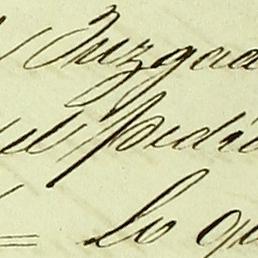 Juzgad
el pedi
= Lo qu